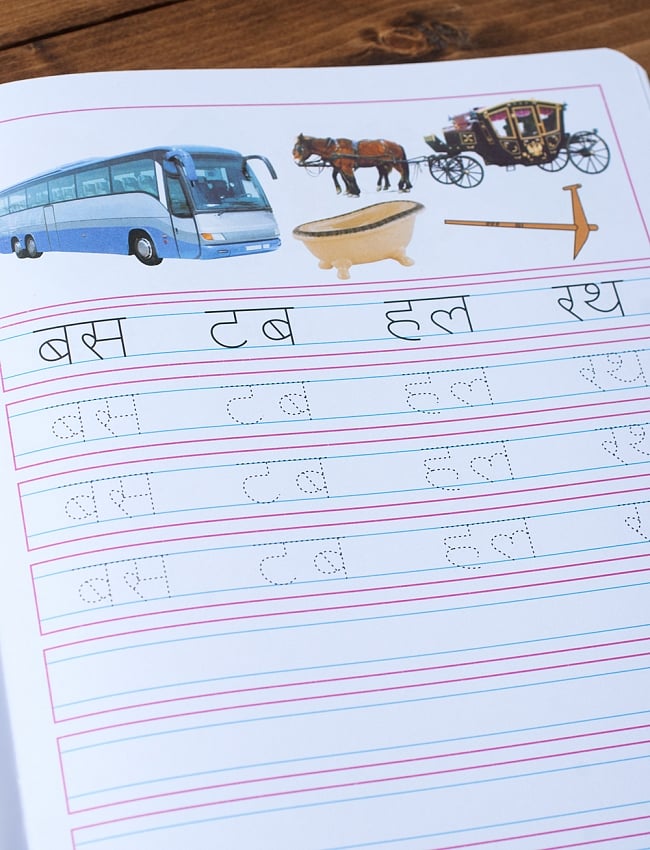 बस टब हल रथ
बस टब हल रथ
बस टब हल रथ
बस टब हल